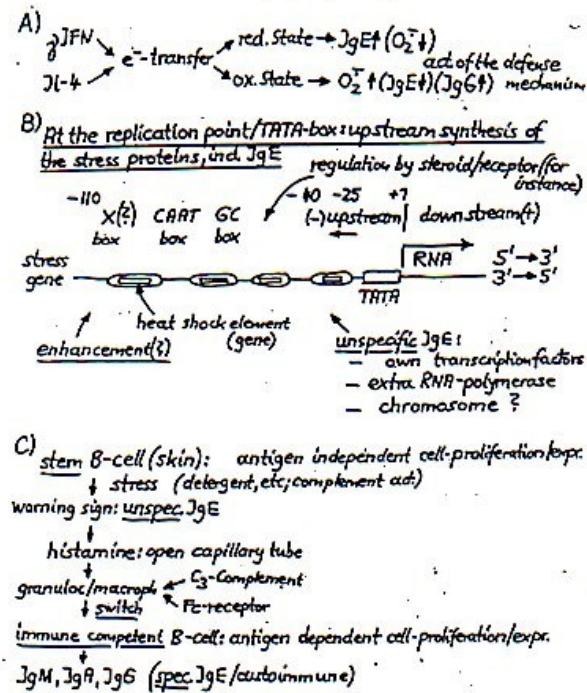 A)
γJFN
Jl-4
e⁻-transfer
red. State → JgE↑ (O₂⁻↓)
act of the defense
ox. State → O₂⁻↑ (JgE↑)(JgG↑) mechanism
B) At the replication point/TATA-box: upstream synthesis of
the stress proteins, incl. JgE
regulation by steroid/receptor (for
instance)
-110 -40 -25 +7
X(?) CAAT GC (-) upstream down stream (+)
box box box
RNA 5'→3'
stress
gene 3'→5'
TATA
heat shock element
(gene)
enhancement(?)
unspecific JgE:
- own transcription factors
- extra RNA-polymerase
- chromosome ?
C) stem B-cell (skin): antigen independent cell-proliferation/expr.
↓ stress (detergent, etc; complement act.)
warning sign: unspec. JgE
↓
histamine: open capillary tube
↓
granuloc/macroph ← C₃-Complement
↓ switch ← Fc-receptor
immune competent B-cell: antigen dependent cell-proliferation/expr.
↓
JgM, JgA, JgG (spec. JgE/autoimmune)